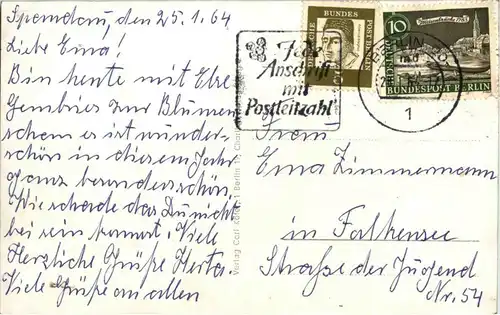 Spandau, den 25.1.64
Liebe Erna!
Bin heute mit Else
zur Blumen
schau es ist wunder
schön in diesem Jahr
ganz besonders schön.
Wie schade das Du nicht
bei sein kannst. Viele
Herzliche Grüße Herta.
Viele Grüße an allen
Jede
Anschrift
mit
Postleitzahl
DEUTSCHE BUNDESPOST BERLIN
10
DEUTSCHE BUNDESPOST BERLIN
1
Frau
Erna Zimmermann
in Falkensee
Straße der Jugend
Nr. 54